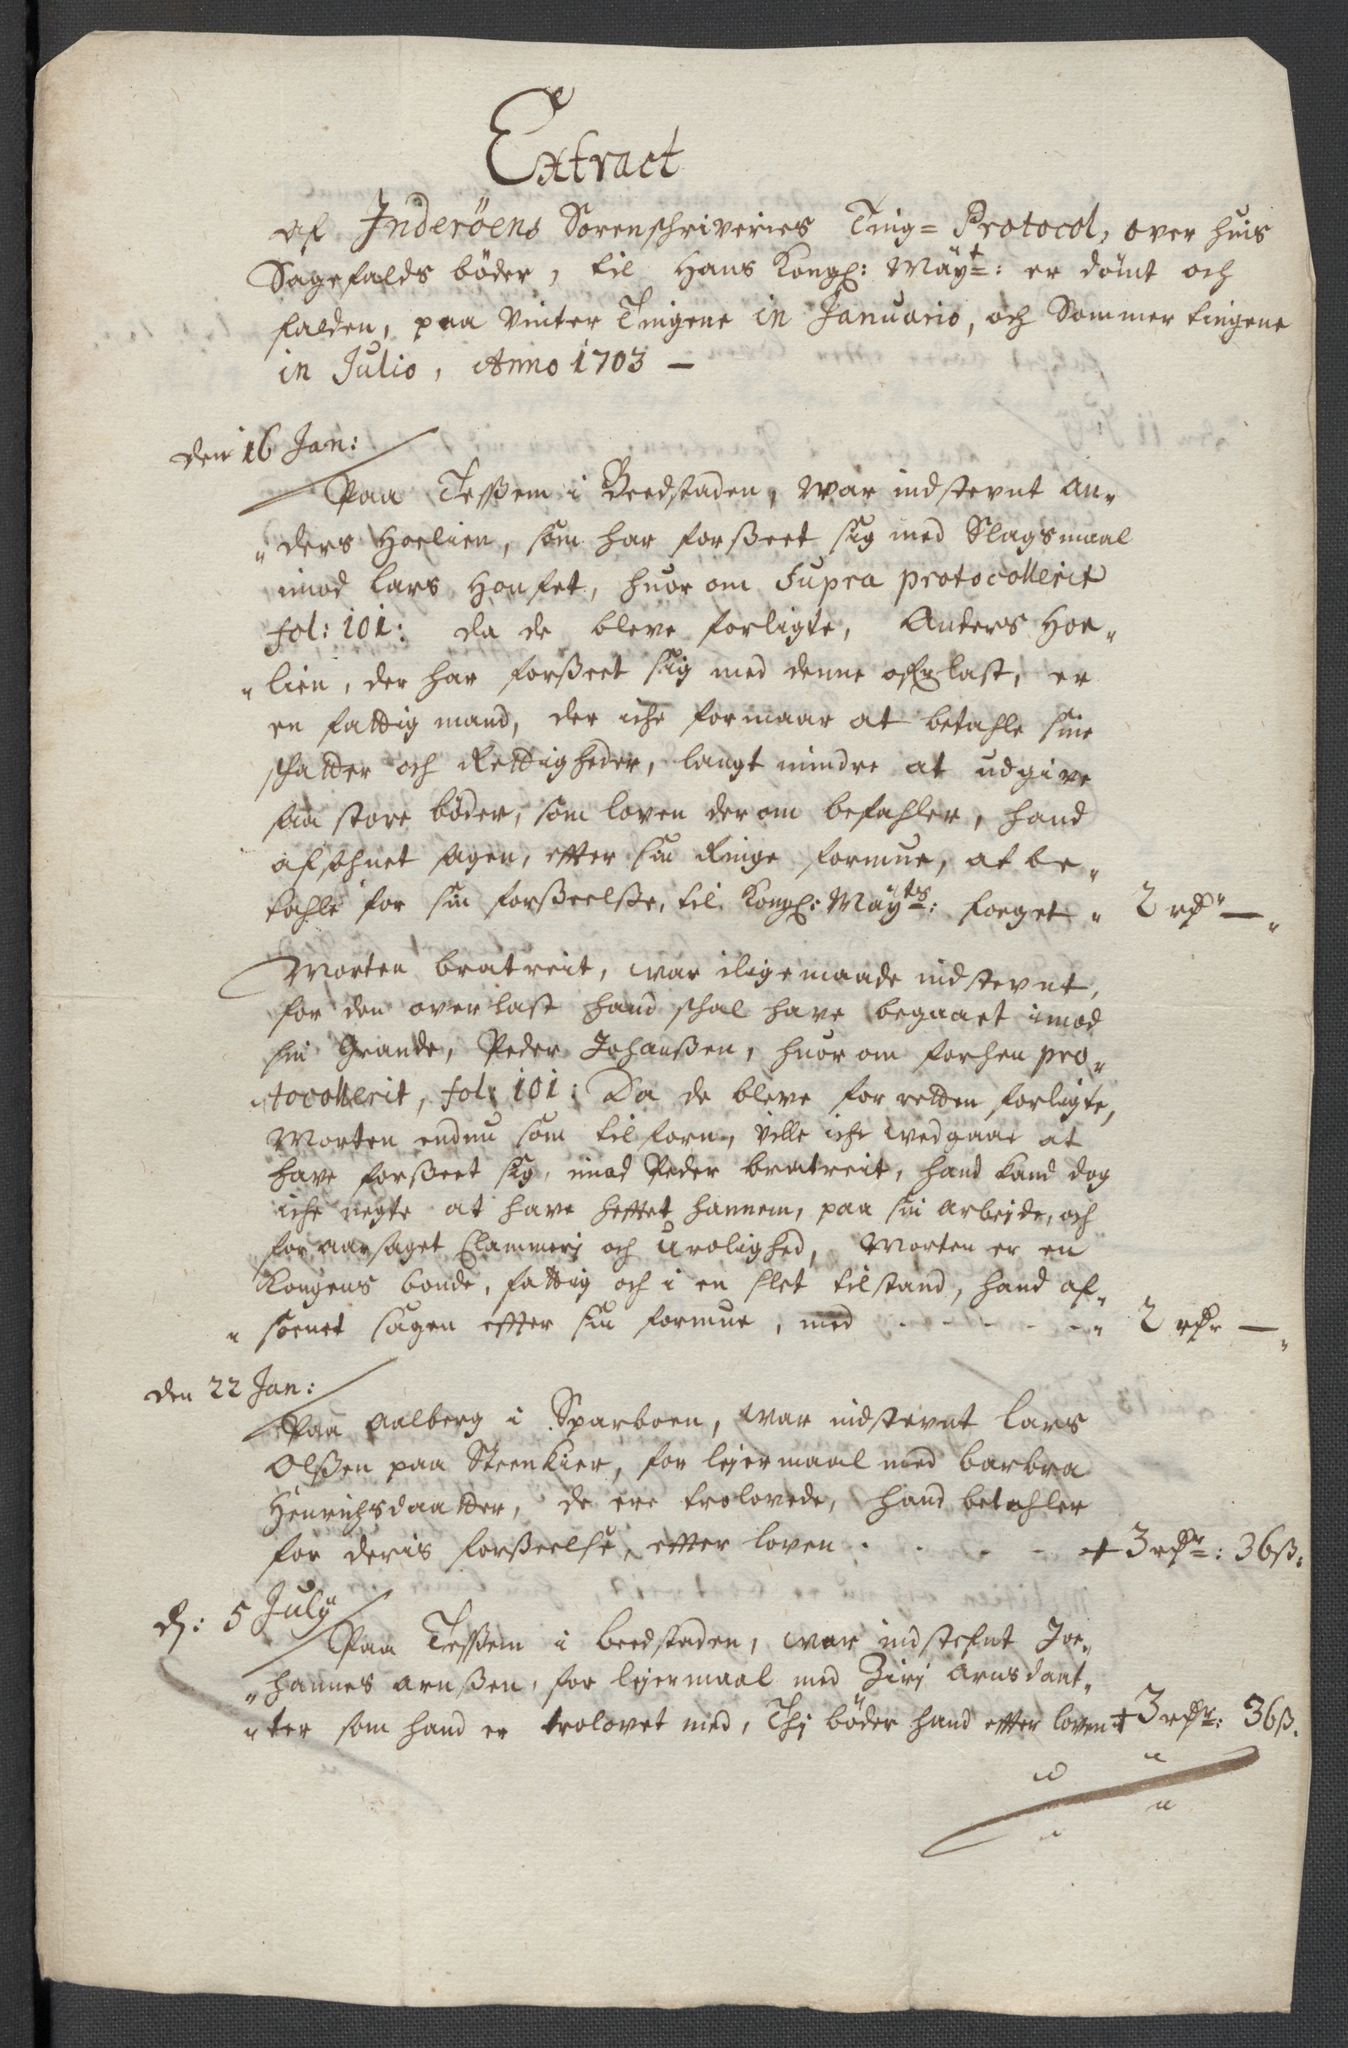 Extract
Af Inderöens Sorenschriveries Ting= Protocol, over huis
Sagefalds böder, til Hans Kongl: Mayt: er dömt och
falden, paa Vinter Tingene in Januario, och Sommer tingene
in Julio, Anno 1703 —
den 16 Jan:
Paa Tessem i Beedstaden, war indstevnt An-
ders Hoelien, som har forßeet sig med Slagsmaal
imod Lars Honset, huor om Supra protocollerit
fol: 101: da de bleve forligte, Anders Hoe-
lien, der har forßeet sig med denne ofrlast, er
en fattig mand, der iche formaar at betahle sine
schatter och Rettigheder, langt mindre at udgive
saa store böder, som loven der om befahler, hand
afsohnet sagen, efter sin Ringe formue, at be-
tahle for sin forßeelße, til Kongl: Mayts: foeget " 2 rdr —
Morten bratreit, war iligemaade indstevnt,
for den overlast hand schal have begaaet imod
sin Grande, Peder Johanßen, huor om forhen pro-
tocollerit, fol: 101: Da de bleve for retten forligte,
Morten endnu som tilforn, ville iche wedgaae at
have forßeet sig, imod Peder bratreit, hand kand dog
iche negte at have heftet hannem, paa sin arbejde, och
for aarsaget Clammerj och Urolighed, Morten er en
Kongens bonde, fattig och i en slet tilstand, hand af-
soenet sagen efter sin formue, med - - - - - 2 rdr —
den 22 Jan:
Paa Aalberg i Sparboen, war indstevnt Lars
Olßen paa Steenkier, for lejermaal med barbra
Henrichsdaatter, de ere trolovede, hand betahler
for deris forßeelse, efter loven - - - - + 3 rdr: 36 ß:
dj: 5 July
Paa Tessem i beedstaden, war indstefnt Joe-
hannes Arnßen, for lejermaal med Zirj Arnsdaat-
ter som hand er trolovet med, Thj böder hand efter loven + 3 rdr: 36 ß.